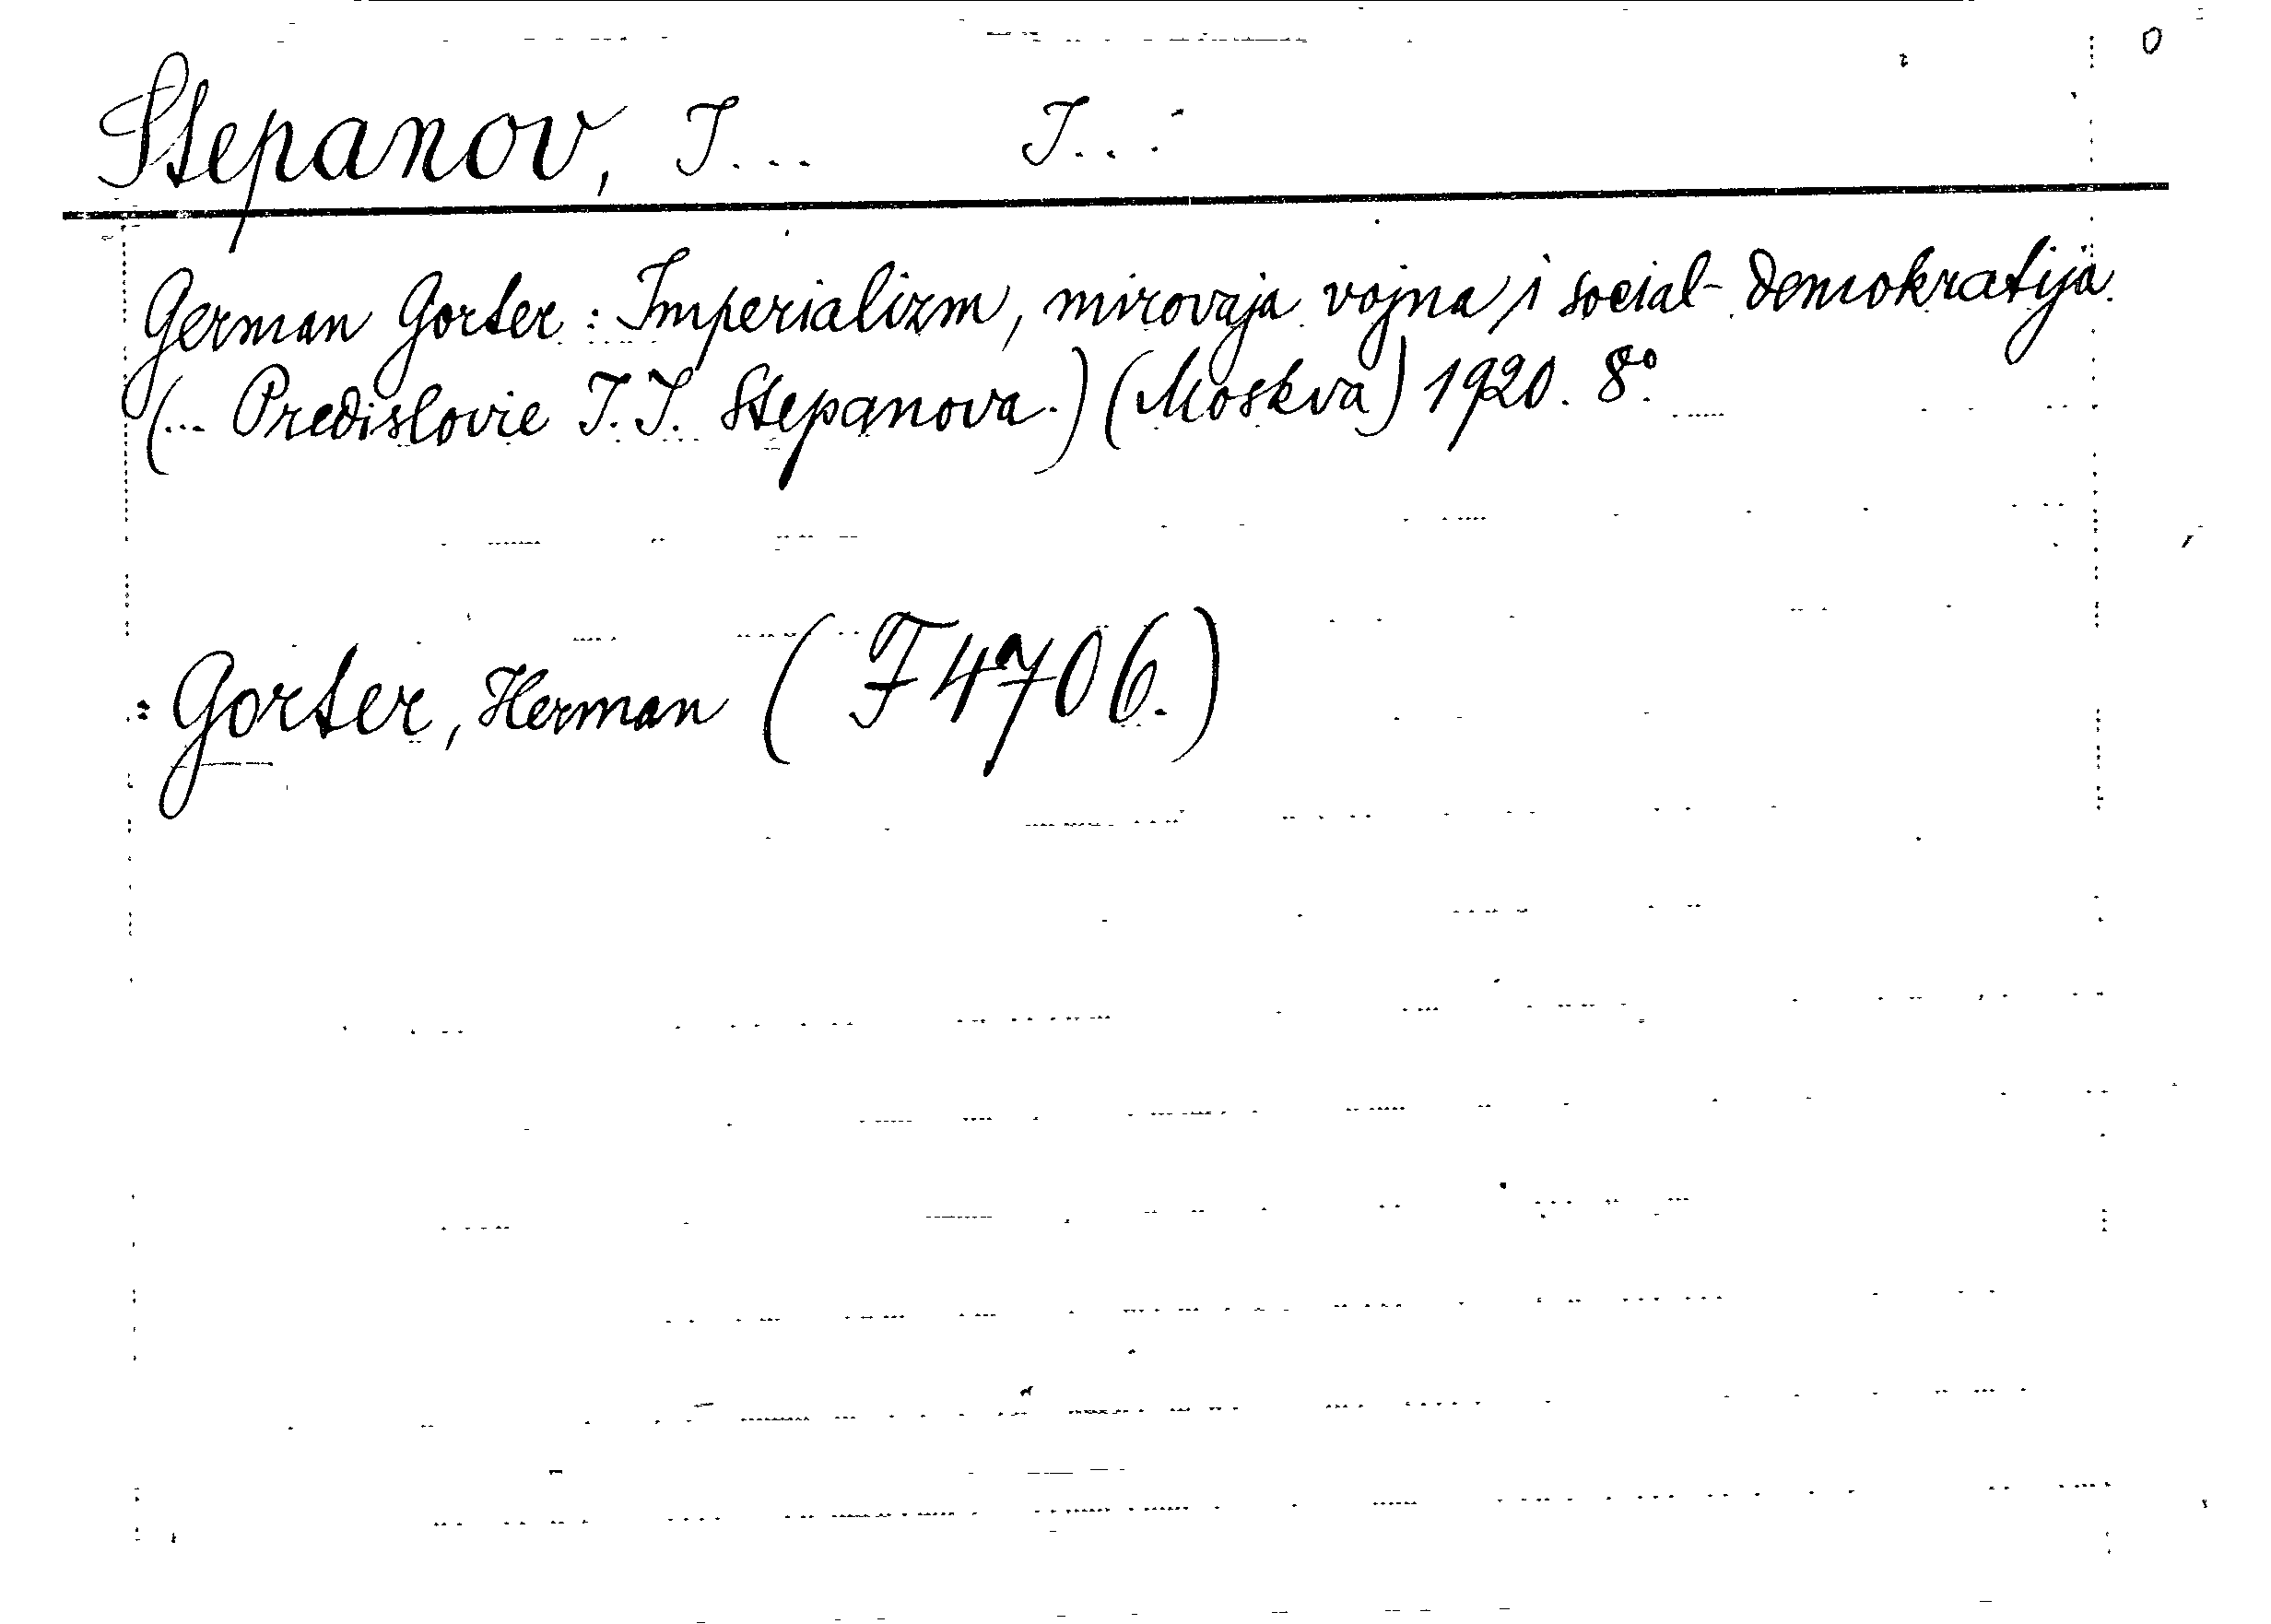 0
Stepanov, I... I...
German Gorter: Imperializm, mirovaja vojna i social-demokratija.
(... Predislovie I.I. Stepanova.) (Moskva) 1920. 8°.
: Gorter, Herman (F 4706.)